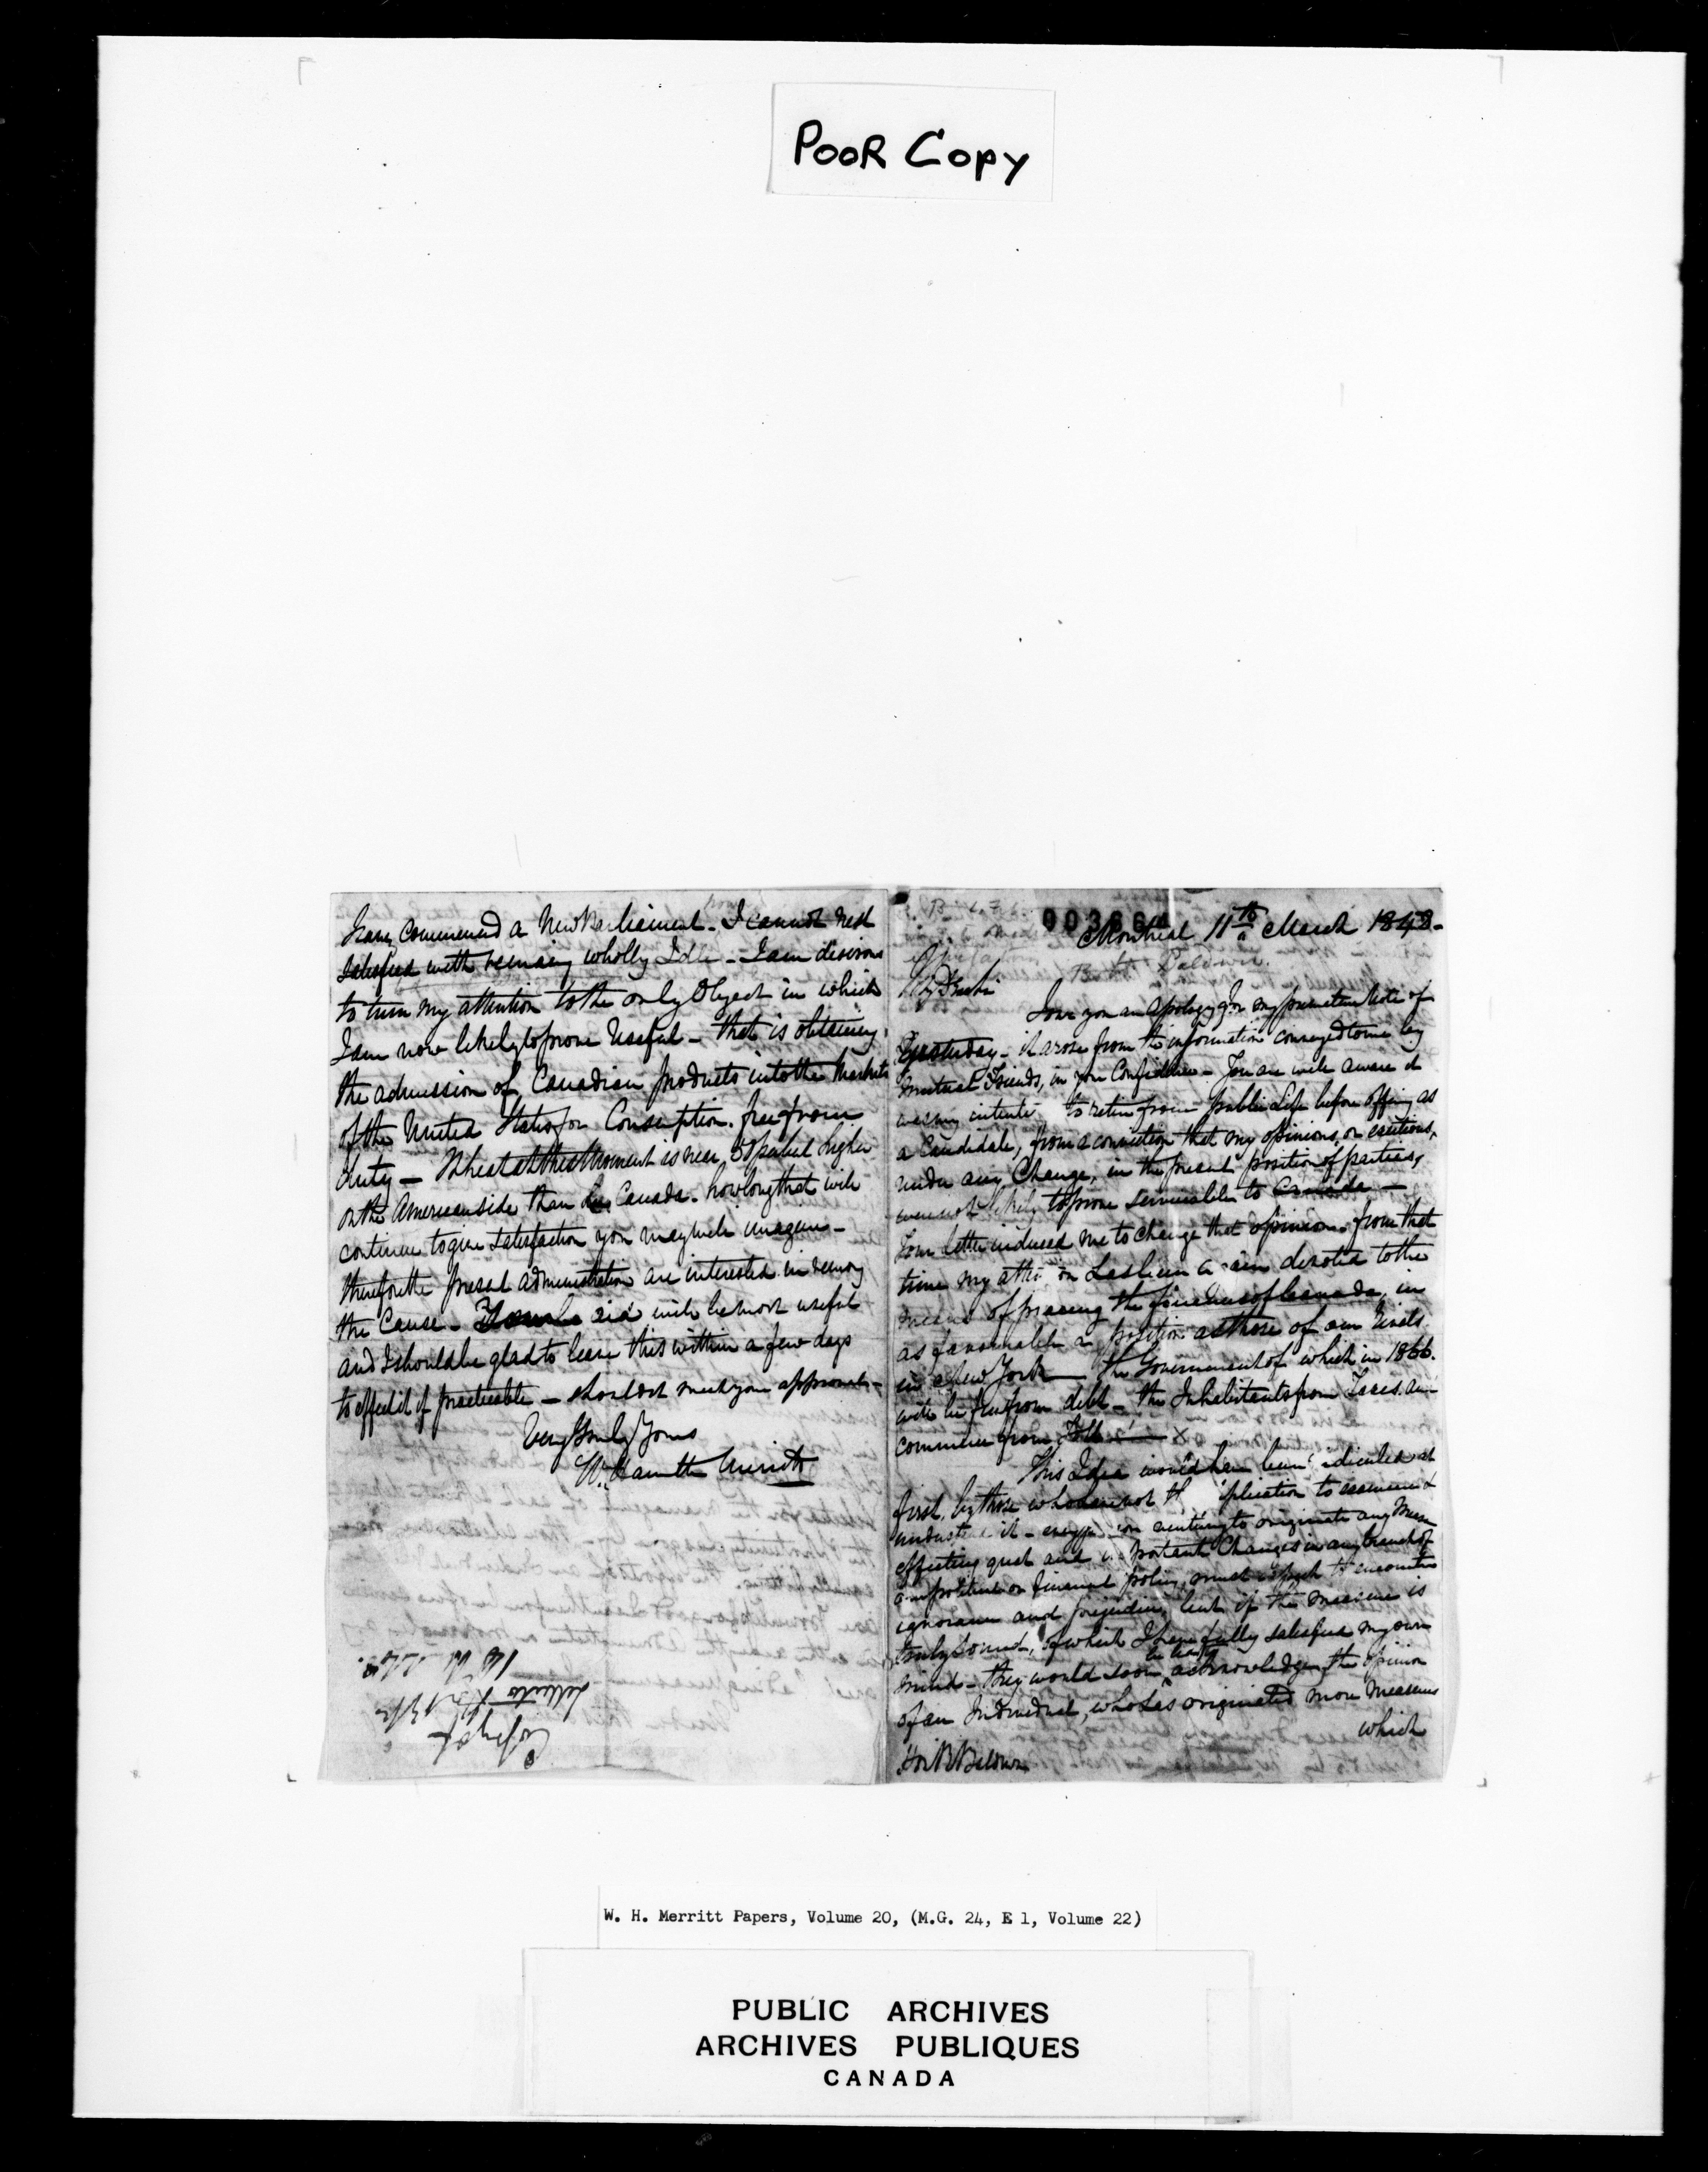 POOR COPY
have commenced a New Parliament. I cannot rest
satisfied with remaing wholly Idle - I am disirous
to turn my attention to the only Object in which
I am now likely to prove Useful - that is obtaining
the admission of Canadian products into the Markets
of the United States for Consumption. free from
duty - Wheat at this Moment is near higher
on the American side than Canada. how long that will
continue to give satisfaction you may well imagine -
therefore the present administration are interested in
the Cause. aid will be most useful
and I should be glad to leave this within a few days
to effect it if practicable - should it meet your approval -
Very Truly Yours
W. Hamilton Merritt
Copy of
Letter to Hon R B
003664
Montreal 11th March 1848 -
My Dear Sir
I owe you an apology for my premature Note of
Yesterday - it arose from the information conveyed to me by
mutual Friends, in your Confidence - You are well aware it
was my to retire from public Life before offering as
a Candidate, from a conviction that my opinions, or exertions,
under any Change, in the present position of parties,
were not likely to prove serviceable to Canada -
Your letter induced me to change that opinion. from that
time my has been again devoted to the
means of placing the finances of Canada, in
as favourable a position as those of our Rivals
in New York - the Government of which in 1866.
will be free from debt - the Inhabitants from Taxes. and
commerce from Toll X
This Idea would have been ridiculed at
first, by those who have not to examine &
understand it - every person venturing to originate any Measure
effecting great and important Changes in any branch of
our political or financial policy, must expect to encounter
ignorance and prejudice, but if the measure is
truly sound, of which I have fully satisfied my own
mind - they would soon acknowledge the opinion
of an Individual, who has originated more Measures
which
Hon R Baldwin
W. H. Merritt Papers, Volume 20, (M.G. 24, E 1, Volume 22)
PUBLIC ARCHIVES
ARCHIVES PUBLIQUES
CANADA